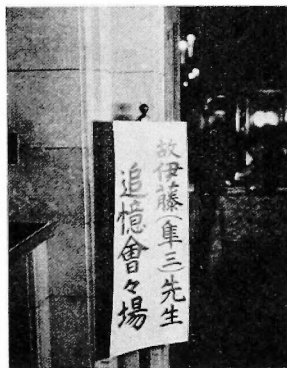 故伊藤(隼三)先生
追憶會々場